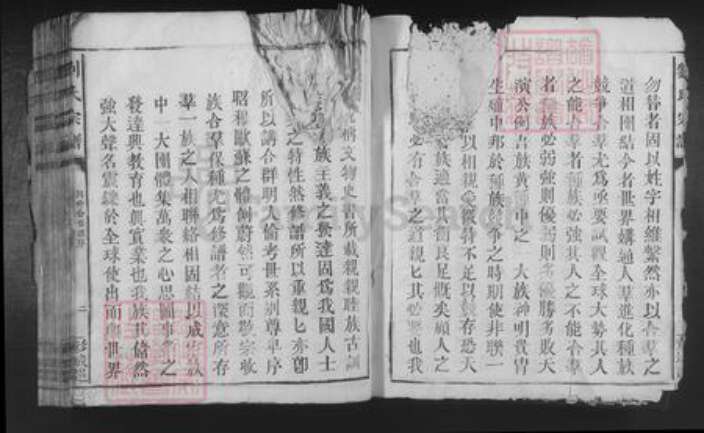 勿替者固以姓字相維繫然亦以合羣之
道相團結今者世界媾通人羣進化種族
競爭合羣尤為亟要試觀全球大勢其人
之能合羣者種族必強其人之不能合羣
者種族必弱強則優弱則劣優勝劣敗天
演公例吾族黃種中之一大族神明貴冑
生殖中邦於種族競爭之時期使非聯一
以相親愛從特不足以競存恐天
族適當其衝良足慨矣顧人之
必有合羣之道親匕其必要也我
稱文物史書所載親親睦族古訓
族主義之發達固為我國人士
之特性然修譜所以重親匕亦即
所以講合群明人倫考世系別尊卑序
昭穆歐蘇之體例蔚然可觀而敬宗收
族合羣保種尤為修譜者之深意所存
羣一族之人相聯絡相固結以成宗族
中一大團體集萬衆之心思圖事業之
發達興教育也興實業也我族其儋然
強大聲名震鑠於全球使出而與世界
劉氏宗譜
二
FamilySearch